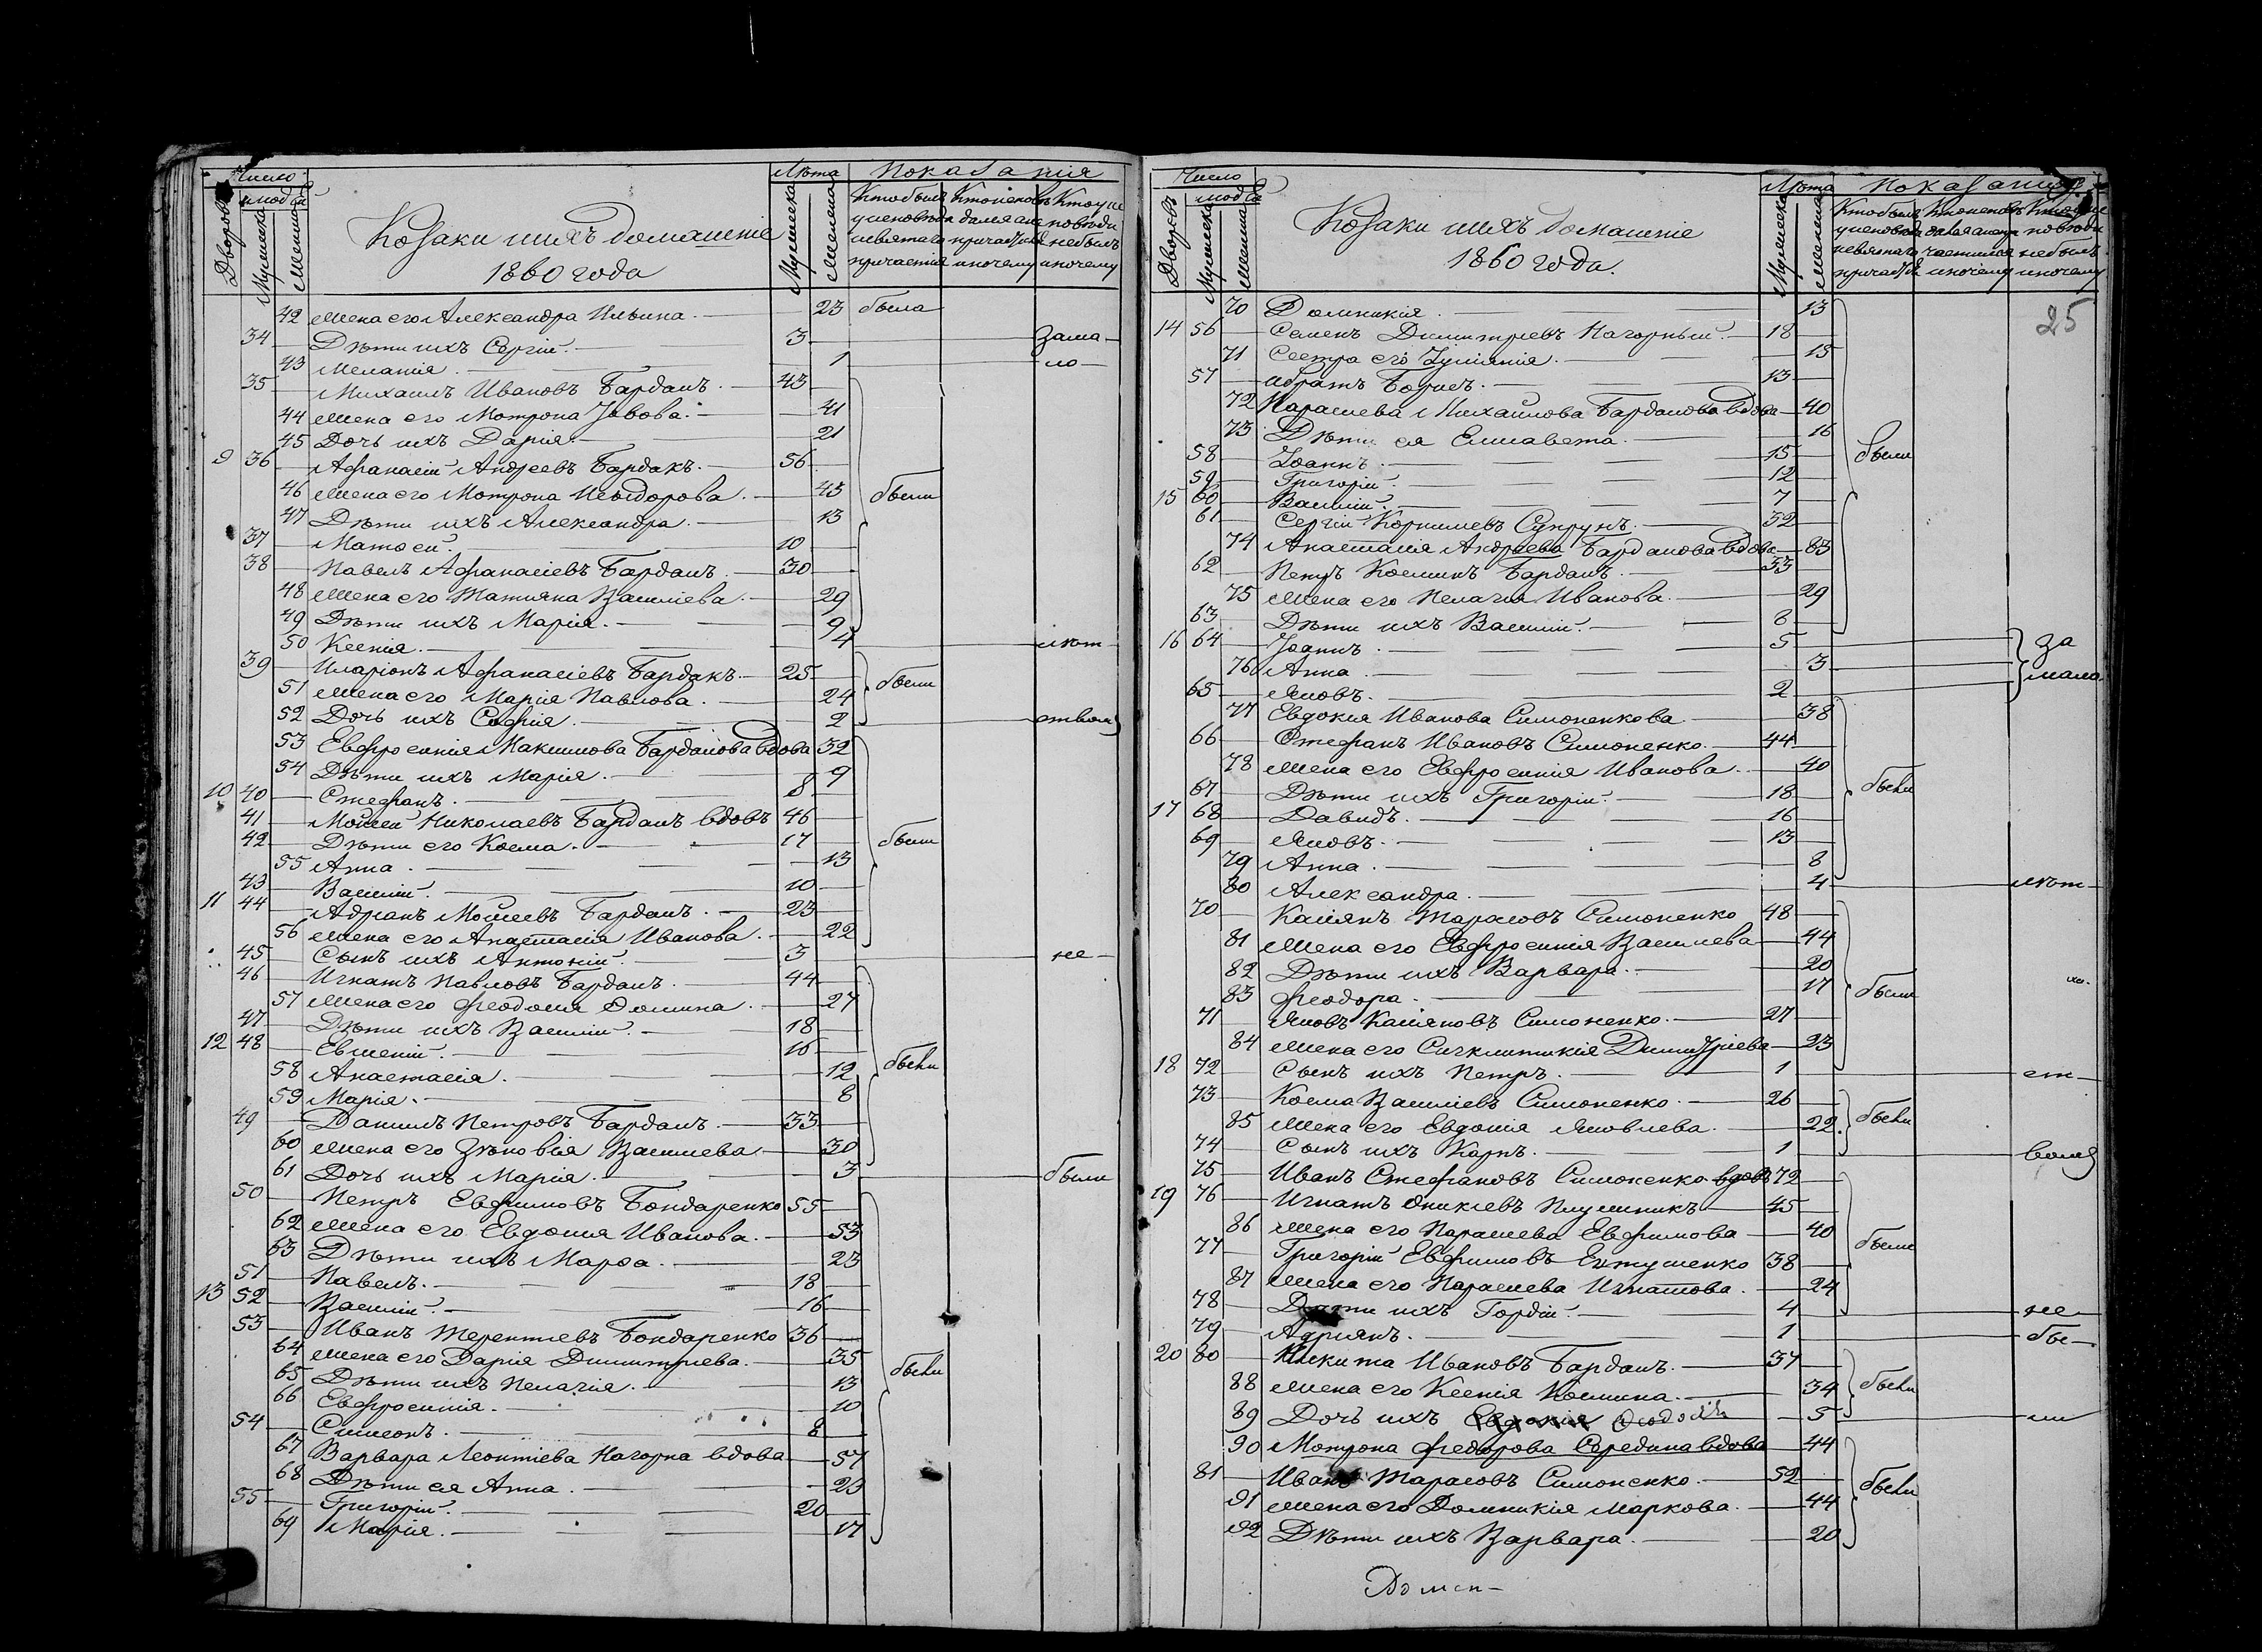 Число
людей
Дворовъ
Мужеска
Женска
Козаки и ихъ домашніе
1860 года
Лѣта
Мужеска
Женска
Показанія
Кто былъ у исповѣди и святаго причастія
42 Жена его Александра Ильина. 23 была
34 Дѣти ихъ Сергій. 3 зама-
43 Меланія. 1 ло-
35 Михаилъ Ивановъ Бардакъ. 43
44 Жена его Мотрона 41
45 Дочь ихъ Дарія. 21
9 36 Афанасій Андреевъ Бардакъ. 56
46 Жена его Мотрона 43 были
47 Дѣти ихъ Александра. 13
37 10
38 Павелъ Афанасіевъ Бардакъ. 30
48 Жена его Татіяна Василіева. 29
49 Дѣти ихъ Марія. 9
50 Ксенія. 4
39 Иларіонъ Афанасіевъ Бардакъ. 25
51 Жена его Марія Павлова. 24 были
52 Дочь ихъ Софія. 2
53 Евфросинія Максимова Бардакова вдова 32
54 Дѣти ихъ Марія. 9
10 40 Стефанъ. 8
41 Мойсей Николаевъ Бардакъ вдовъ 46
42 Дѣти его Косма. 17 были
55 Анна. 13
43 Василій. 10
11 44 Адріанъ Мойсеевъ Бардакъ. 23
56 Жена его Анастасія Иванова. 22
45 Сынъ ихъ Антоній. 3 не-
46 Игнатъ Павловъ Бардакъ. 44
57 Жена его Феодосія 27
47 Дѣти ихъ Василій. 18
12 48 Евгеній. 16
58 Анастасія. 12 были
59 Марія. 6
49 Даніилъ Петровъ Бардакъ. 33
60 Жена его Зѣновія Василіева. 30
61 Дочь ихъ Марія. 3 были
50 Петръ Евфимовъ Бондаренко 55
62 Жена его Евдокия Иванова. 53
63 Дѣти ихъ Марѳа. 23
51 Павелъ. 18
13 52 Василій. 16
53 Иванъ Терентіевъ Бондаренко 36
64 Жена его Дарія Димитріева. 35
65 Дѣти ихъ Пелагія. 13 были
66 Евфросинія. 10
54 Симеонъ. 8
67 Варвара Леонтіева Нагорна вдова 57
68 Дѣти ея Анна. 23
55 Григорій. 20
69 Марія. 17
Число
людей
Дворовъ
Мужеска
Женска
Козаки и ихъ домашніе
1860 года.
Лѣта
Мужеска
Женска
Показанія
25
70 Домникія. 13
14 56 Семенъ Димитріевъ Нагорный. 18
71 Сестра его Іуліянія. 15
57 и братъ Борисъ. 13
72 Параскева Михайлова Бардакова вдова 40
73 Дѣти ея Елисавета. 16
58 Іоаннъ. 15 были
59 Григорій. 12
15 60 Василій. 7
61 Сергій Корнилевъ Супрунъ. 52
74 Анастасія Андреева Бардакова вдова 83
62 Петръ Косминъ Бардакъ. 33
75 Жена его Пелагія Иванова. 29
63 Дѣти ихъ Василій. 8
16 64 Іоаннъ. 5 за
76 Анна. 3 мало
65 Яковъ. 2
77 Евдокия Иванова Симоненкова 38
66 Стефанъ Ивановъ Симоненко. 44
78 Жена его Евфросинія Иванова. 40
67 Дѣти ихъ Григорій. 18 были
17 68 Давидъ. 16
69 Яковъ. 13
79 Анна. 8
80 Александра. 4
70 Касіянъ Тарасовъ Симоненко 48
81 Жена его Евфросинія Василева 44
82 Дѣти ихъ Варвара. 20
83 Феодора. 17 были
71 Яковъ Касіяновъ Симоненко. 27
84 Жена его Сигклитикія Димитріева 23
18 72 Сынъ ихъ Петръ. 1
73 Косма Василіевъ Симоненко. 26
85 Жена его Евдокия Яковлева. 22 были
74 Сынъ ихъ Карпъ. 1
75 Иванъ Стефановъ Симоненко вдовъ 72
19 76 Игнатъ 45
86 Жена его Параскева Евфимова 40
77 Григорій Евфимовъ Евтушенко 38 были
87 Жена его Параскева Игнатова. 24
78 Дѣти ихъ Гордій. 4 не
79 Адріянъ. 1 бы-
20 80 Никита Ивановъ Бардакъ. 37
88 Жена его Ксенія Космина. 34 были
89 Дочь ихъ 5 ли
90 Мотрона Федорова Середина вдова 44
81 Иванъ Тарасовъ Симоненко. 52
91 Жена его Домникія Маркова. 44 были
92 Дѣти ихъ Варвара. 20